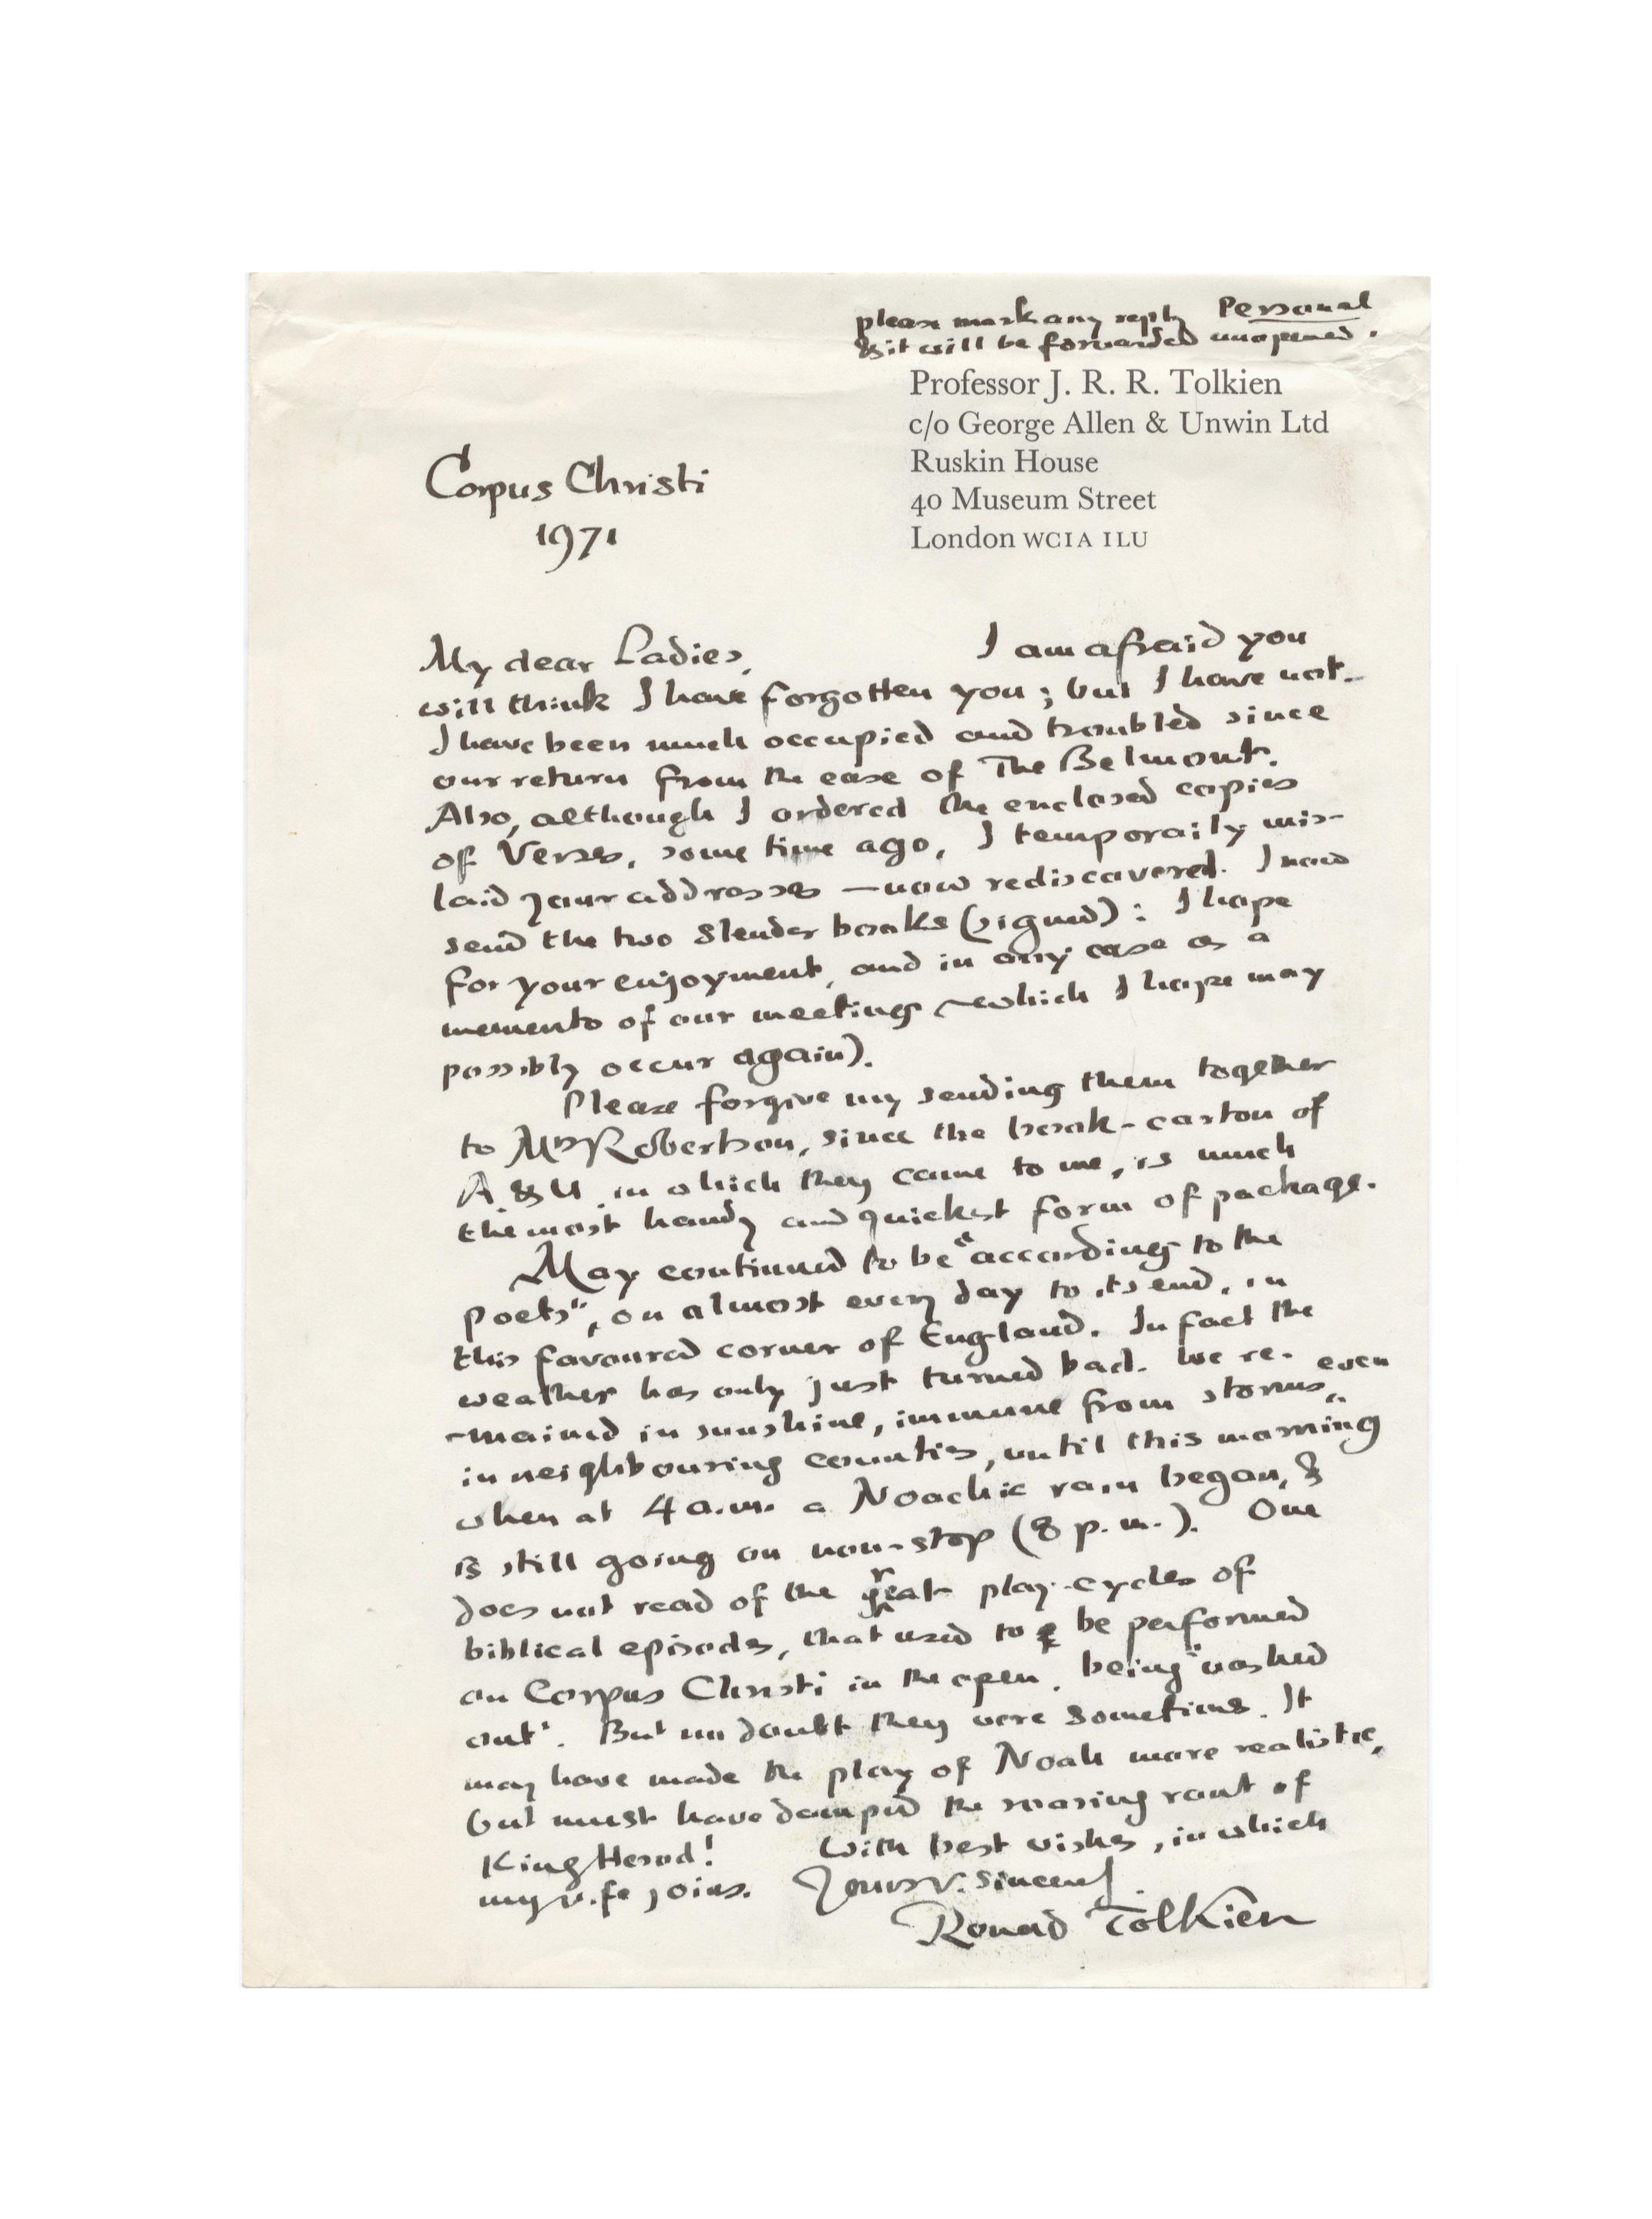 please mark any reply Personal
& it will be forwarded unopened.
Professor J. R. R. Tolkien
c/o George Allen & Unwin Ltd
Ruskin House
40 Museum Street
London WC1A 1LU
Corpus Christi
1971
My dear Ladies,
I am afraid you
will think I have forgotten you; but I have not.
I have been much occupied and troubled since
our return from the ease of The Belmont.
Also, although I ordered the enclosed copies
of Verses, some time ago, I temporaily mis-
laid your addresses – now rediscovered. I now
send the two slender books (signed): I hope
for your enjoyment, and in any case as a
memento of our meeting – which I hope may
possibly occur again).
Please forgive my sending them together
to Mrs Robertson, since the book-carton of
A & U in which they came to me, is much
the most handy and quickest form of package.
May continued to be "according to the
poets", on almost every day to its end, in
this favoured corner of England. In fact the
weather has only just turned bad. We re-
-mained in sunshine, immune from storms even
in neighbouring counties, until this morning
when at 4 a.m. a Noachic rain began, &
is still going on non-stop (8 p.m.). One
does not read of the great play-cycles of
biblical episodes, that used to be performed
on Corpus Christi in the open, being "washed
out". But no doubt they were sometimes. It
may have made the play of Noah more realistic,
but must have damped the roaring rant of
King Herod! With best wishes, in which
my wife joins. Yours v. sincerely
Ronald Tolkien